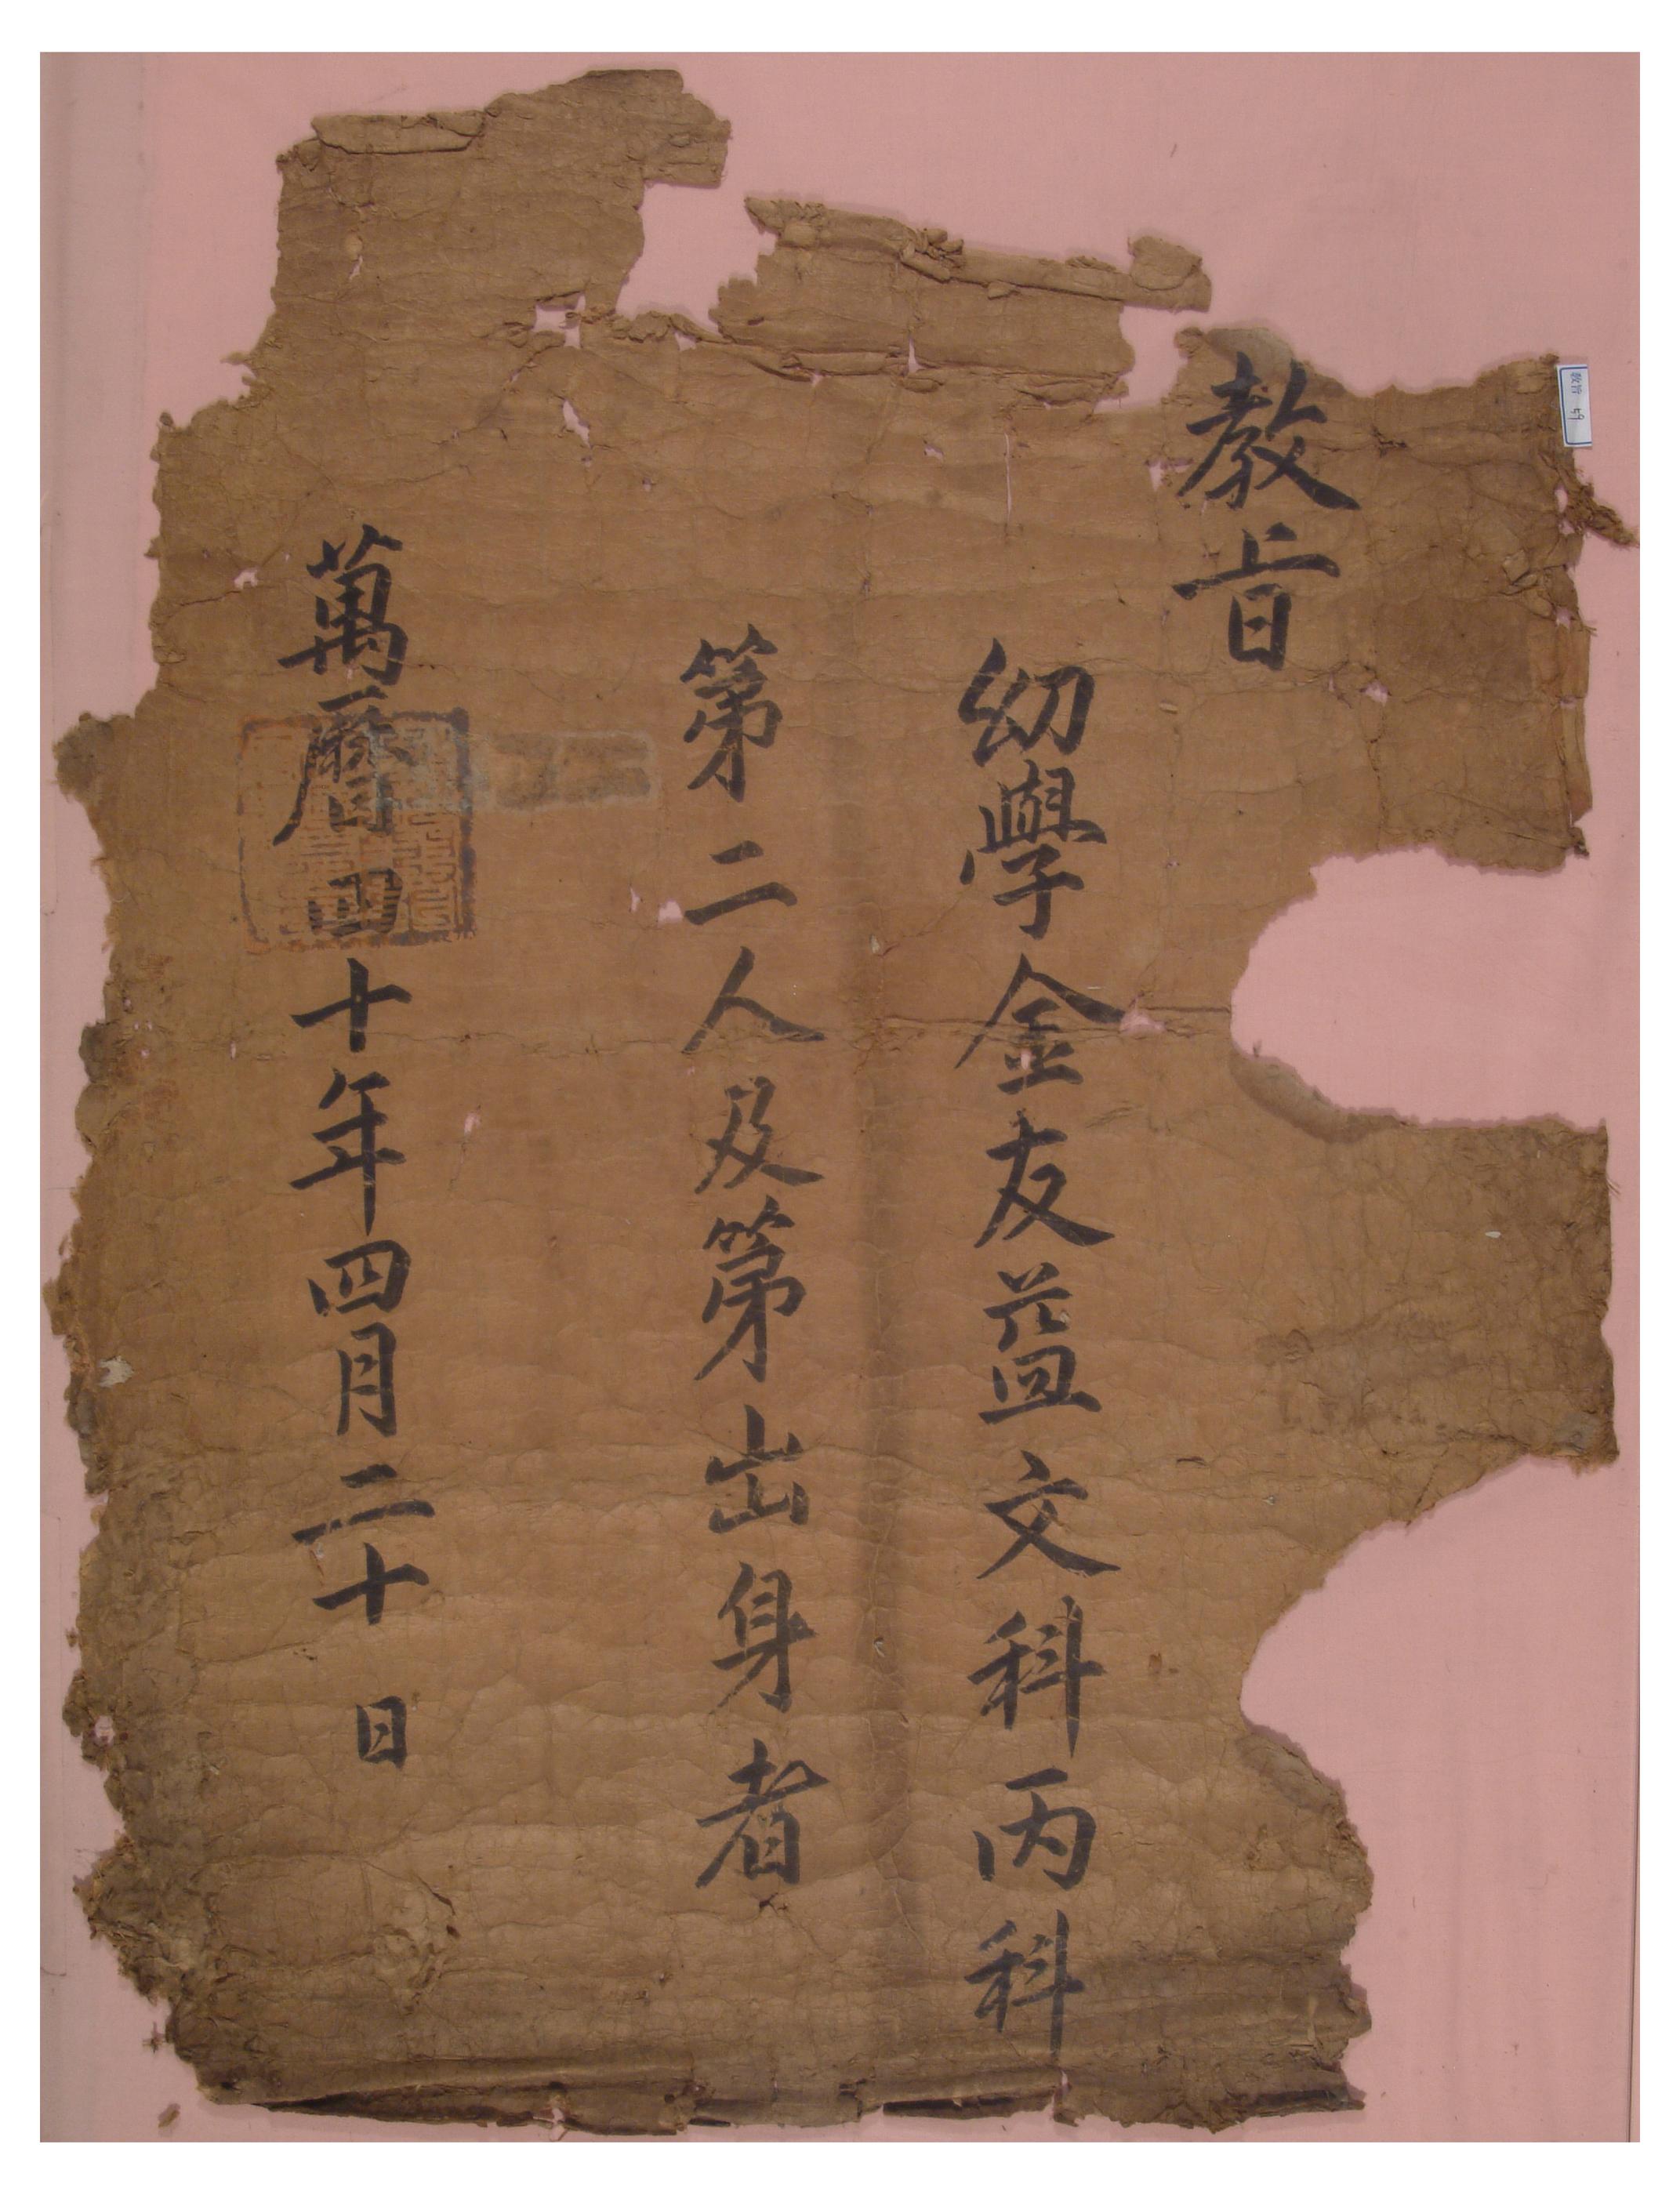 教旨
幼學金友益文科丙科
第二人及第出身者
萬曆四十年四月二十日
敎旨 59